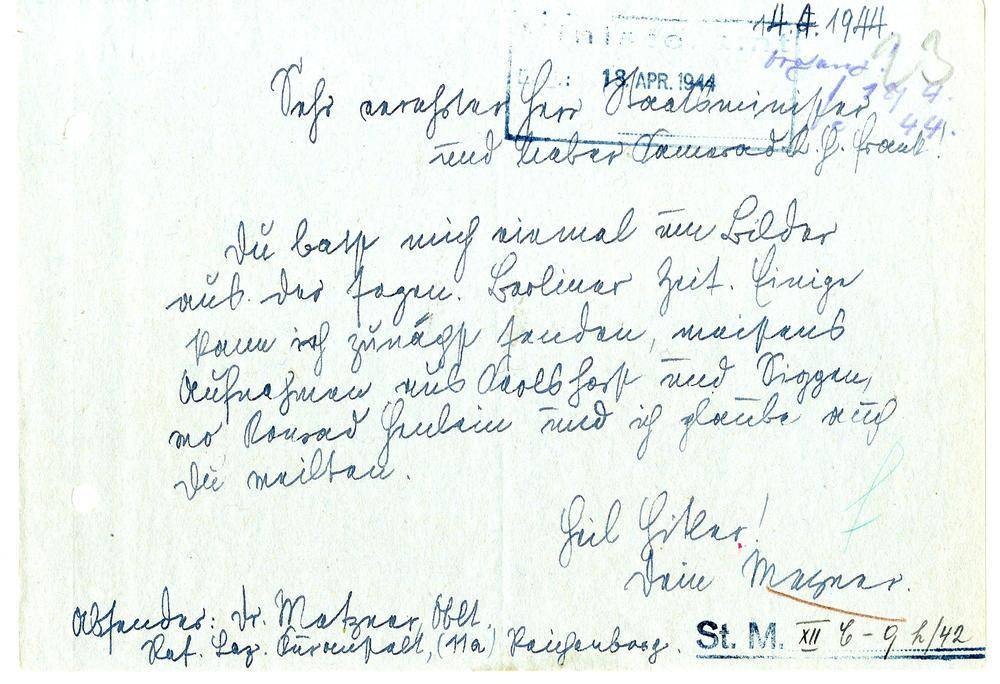 14.4.1944.
18. APR. 1944
23
Sehr verehrter Herr Staatsminister
und lieber Kamerad K. H. Frank!
Du batst mich einmal um Bilder
aus der sogen. Berliner Zeit. Einige
kann ich zunächst senden, meistens
Aufnahmen aus Karlshorst und Siggen,
wo Konrad Henlein und ich glaube auch
Du weilten.
Heil Hitler!
Dein Metzner.
Absender: Dr. Metzner, Oblt.
Res. Laz. Kuranstalt, (11a) Reichenberg.
St. M. XII C - 9 h/42